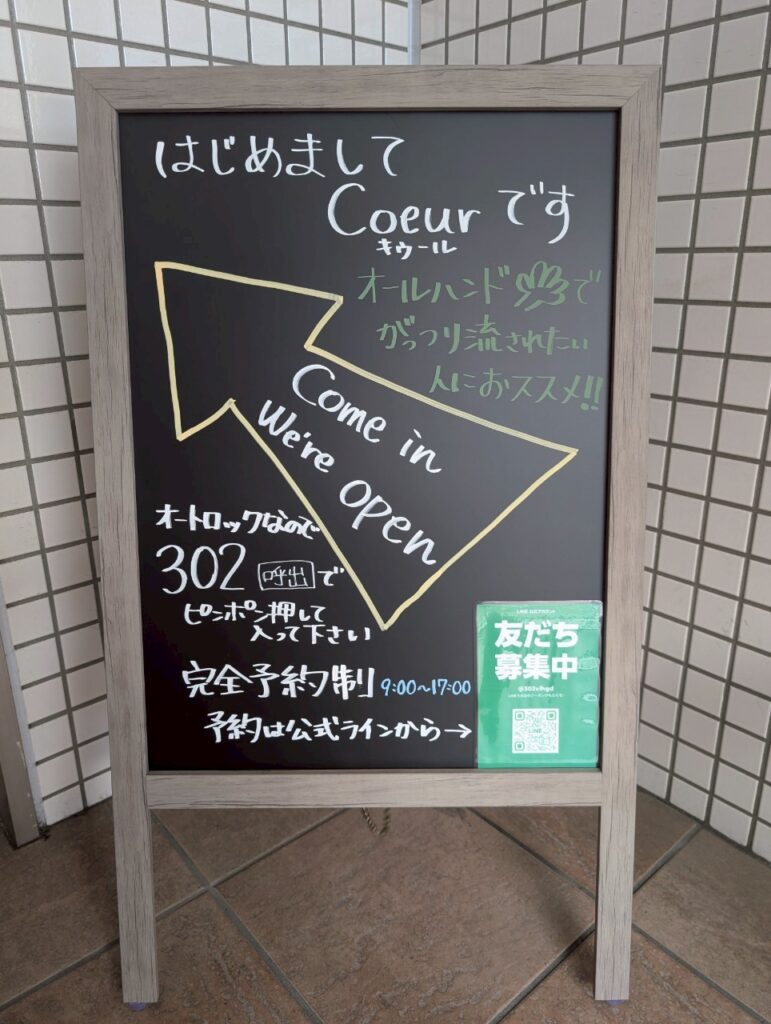 はじめまして
Coeurです
キゥール
オールハンドで
がっつり流されたい
人におススメ!!
Come in
We're open
オートロックなので
302 呼出で
ピンポン押して
入って下さい
完全予約制 9:00~17:00
予約は公式ラインから→
LINE 公式アカウント
友だち
募集中
LINE